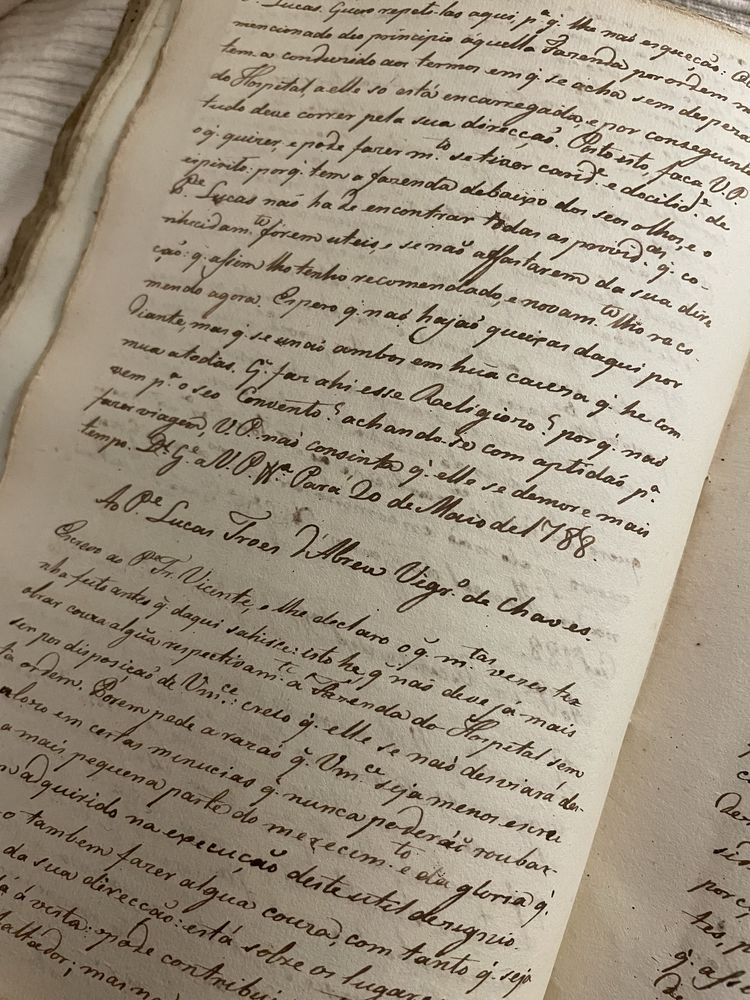 Lucas. Quero repeti-las aqui, p.ª q̃. lhe não esqueção:
mencionado deo principio áquella Fazenda por ordem
tem-a conduzido aos termos em q̃. se acha sem despeza
do Hospital, a elle só está encarregada, e por conseguinte
tudo deve correr pela sua direcçaõ. Posto isto, faça V. P.
o q̃. quizer, e póde fazer m.to se tiver carid.e e docilid.e de
espirito: por q̃. tem a fazenda debaixo dos seos olhos, e o
P.e Lucas naõ ha de encontrar todas as provid.as q̃. co-
nhecidam.te forem uteis, e se naõ affastarem da sua dire-
cçaõ: q̃. assim lho tenho recomendado, e novam.te lho raco-
mendo agora. Espero q̃. naõ hajaõ queixas daqui por
diante, mas q̃. se unaõ ambos em hũa cauza q̃. he com
mua a todas. Q̃. faz ahi esse Religiozo? por q̃. naõ
vem p.ª o seo Convento? achando-se com aptidaõ p.ª
fazer viagem, V. P. naõ consinta q̃. elle se demore mais
tempo. D.s G.e a V. P. Pará 20 de Maio de 1788.
Ao P.e Lucas Trozes d'Abreu Vigr.o de Chaves.
Escrevo ao P.e Fr. Vicente, e lhe declaro o q̃. m.tas vezes ti-
nha feito antes q̃. daqui sahisse: isto he, q̃. naõ deve já mais
obrar couza algũa respectivam.te á Fazenda do Hospital sem
ser por disposiçaõ de Vm.ce: creio q̃. elle se naõ desviará des-
ta ordem. Porem pede a razaõ q̃. Vm.ce seja menos escru
pulozo em certas minucias q̃. nunca poderáõ roubar-
a mais pequena parte do merecim.to e da gloria q̃.
adquirido na execuçaõ deste util designio.
tambem fazer algũa couza, com tanto q̃. seja
da sua direcçaõ: está sobre os lugares
á vista: póde contribuir
mas